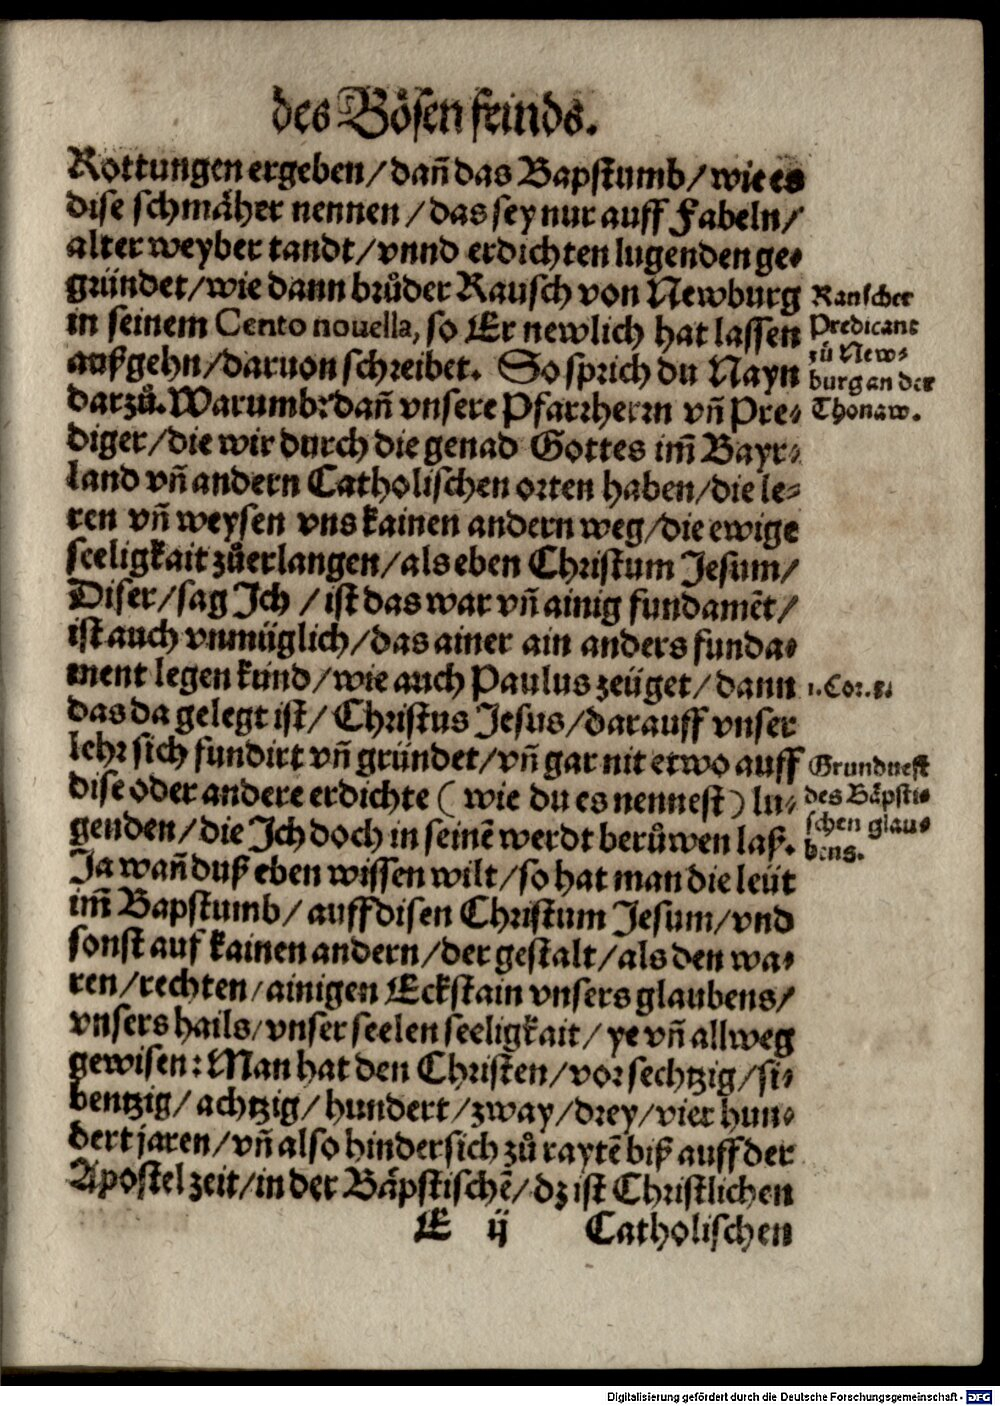 des Bösen feinds.
Rottungen ergeben/dañ das Bapstumb/wie es
dise schmäher nennen/das sey nur auff Fabeln/
alter weyber tandt/vnnd erdichten lugenden ge⸗
gründet/wie dann brůder Rausch von Newburg
in seinem Cento nouella, so Er newlich hat lassen
außgehn/daruon schreibet. So sprich du Nayn
darzů. Warumb? dañ vnsere Pfarrherrn vñ Pre⸗
diger/die wir durch die genad Gottes im̃ Bayr⸗
land vñ andern Catholischen orten haben/die le⸗
ren vñ weysen vns kainen andern weg/die ewige
seeligkait zůerlangen/als eben Christum Jesum/
Diser/sag Ich/ist das war vñ ainig fundamẽt/
ist auch vnmüglich/das ainer ain anders funda⸗
ment legen künd/wie auch Paulus zeüget/dann
das da gelegt ist/Christus Jesus/darauff vnser
lehr sich fundirt vñ gründet/vñ gar nit etwo auff
dise oder andere erdichte (wie du es nennest) lu⸗
genden/die Ich doch in seinẽ werdt berůwen laß.
Ja wañ duß eben wissen wilt/so hat man die leüt
im̃ Bapstumb/auff disen Christum Jesum/vnd
sonst auf kainen andern/der gestalt/als den wa⸗
ren/rechten/ainigen Eckstain vnsers glaubens/
vnsers hails/vnser seelen seeligkait/ye vñ allweg
gewisen: Man hat den Christen/vor sechtzig/si⸗
bentzig/achtzig/hundert/zway/drey/vier hun⸗
dert jaren/vñ also hindersich zů raytẽ biß auff der
Apostel zeit/in der Bäpstischẽ/dz ist Christlichen
E ij Catholischen
Rauscher
Predicant
zů New⸗
burg an der
Thonaw.
1. Cor.
Grunduest
des Bäpsti⸗
schen glau⸗
bens.
Digitalisierung gefördert durch die Deutsche Forschungsgemeinschaft - DFG